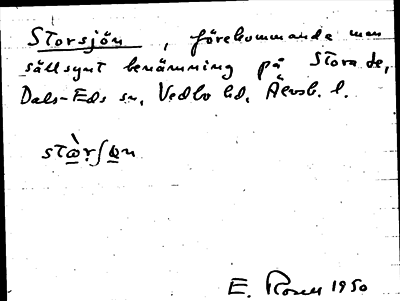 Storsjön, förekommande men
sällsynt benämning på Stora Le,
Dals-Eds sn, Vedbo hd, Älvsb. l.
E. Rosell 1950